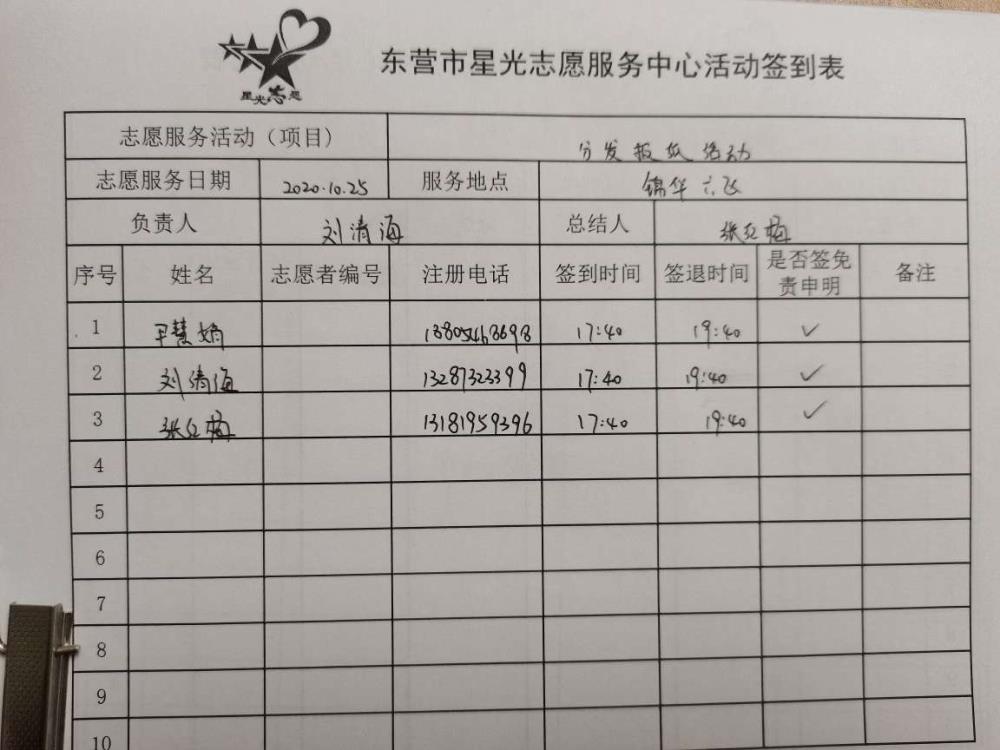 星光志愿
东营市星光志愿服务中心活动签到表
志愿服务活动（项目） 分发报纸活动
志愿服务日期 2020.10.25 服务地点 锦华六区
负责人 刘清海 总结人 张红梅
序号 姓名 志愿者编号 注册电话 签到时间 签退时间 是否签免责申明 备注
1 慧娟 13805468698 17:40 19:40 ✓
2 刘清海 13287323399 17:40 19:40 ✓
3 张红梅 13181959396 17:40 19:40 ✓
4
5
6
7
8
9
10